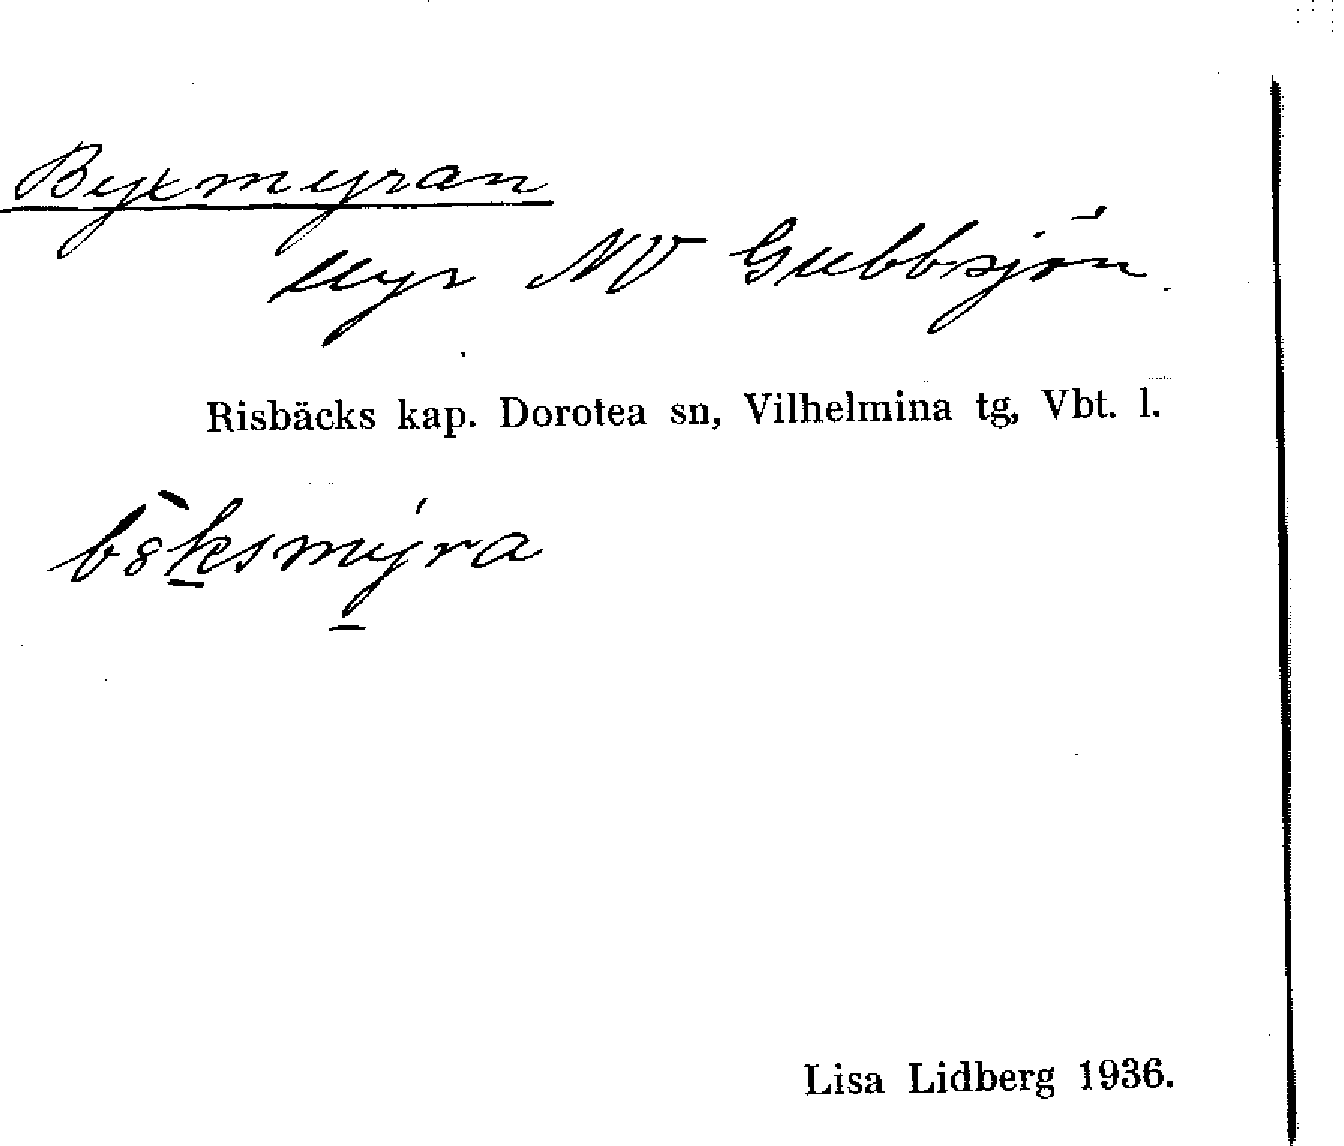 Byxmyran
Myr NV Gubbsjön.
Risbäcks kap. Dorotea sn, Vilhelmina tg, Vbt. l.
b8̀ksmy̍ra
Lisa Lidberg 1936.